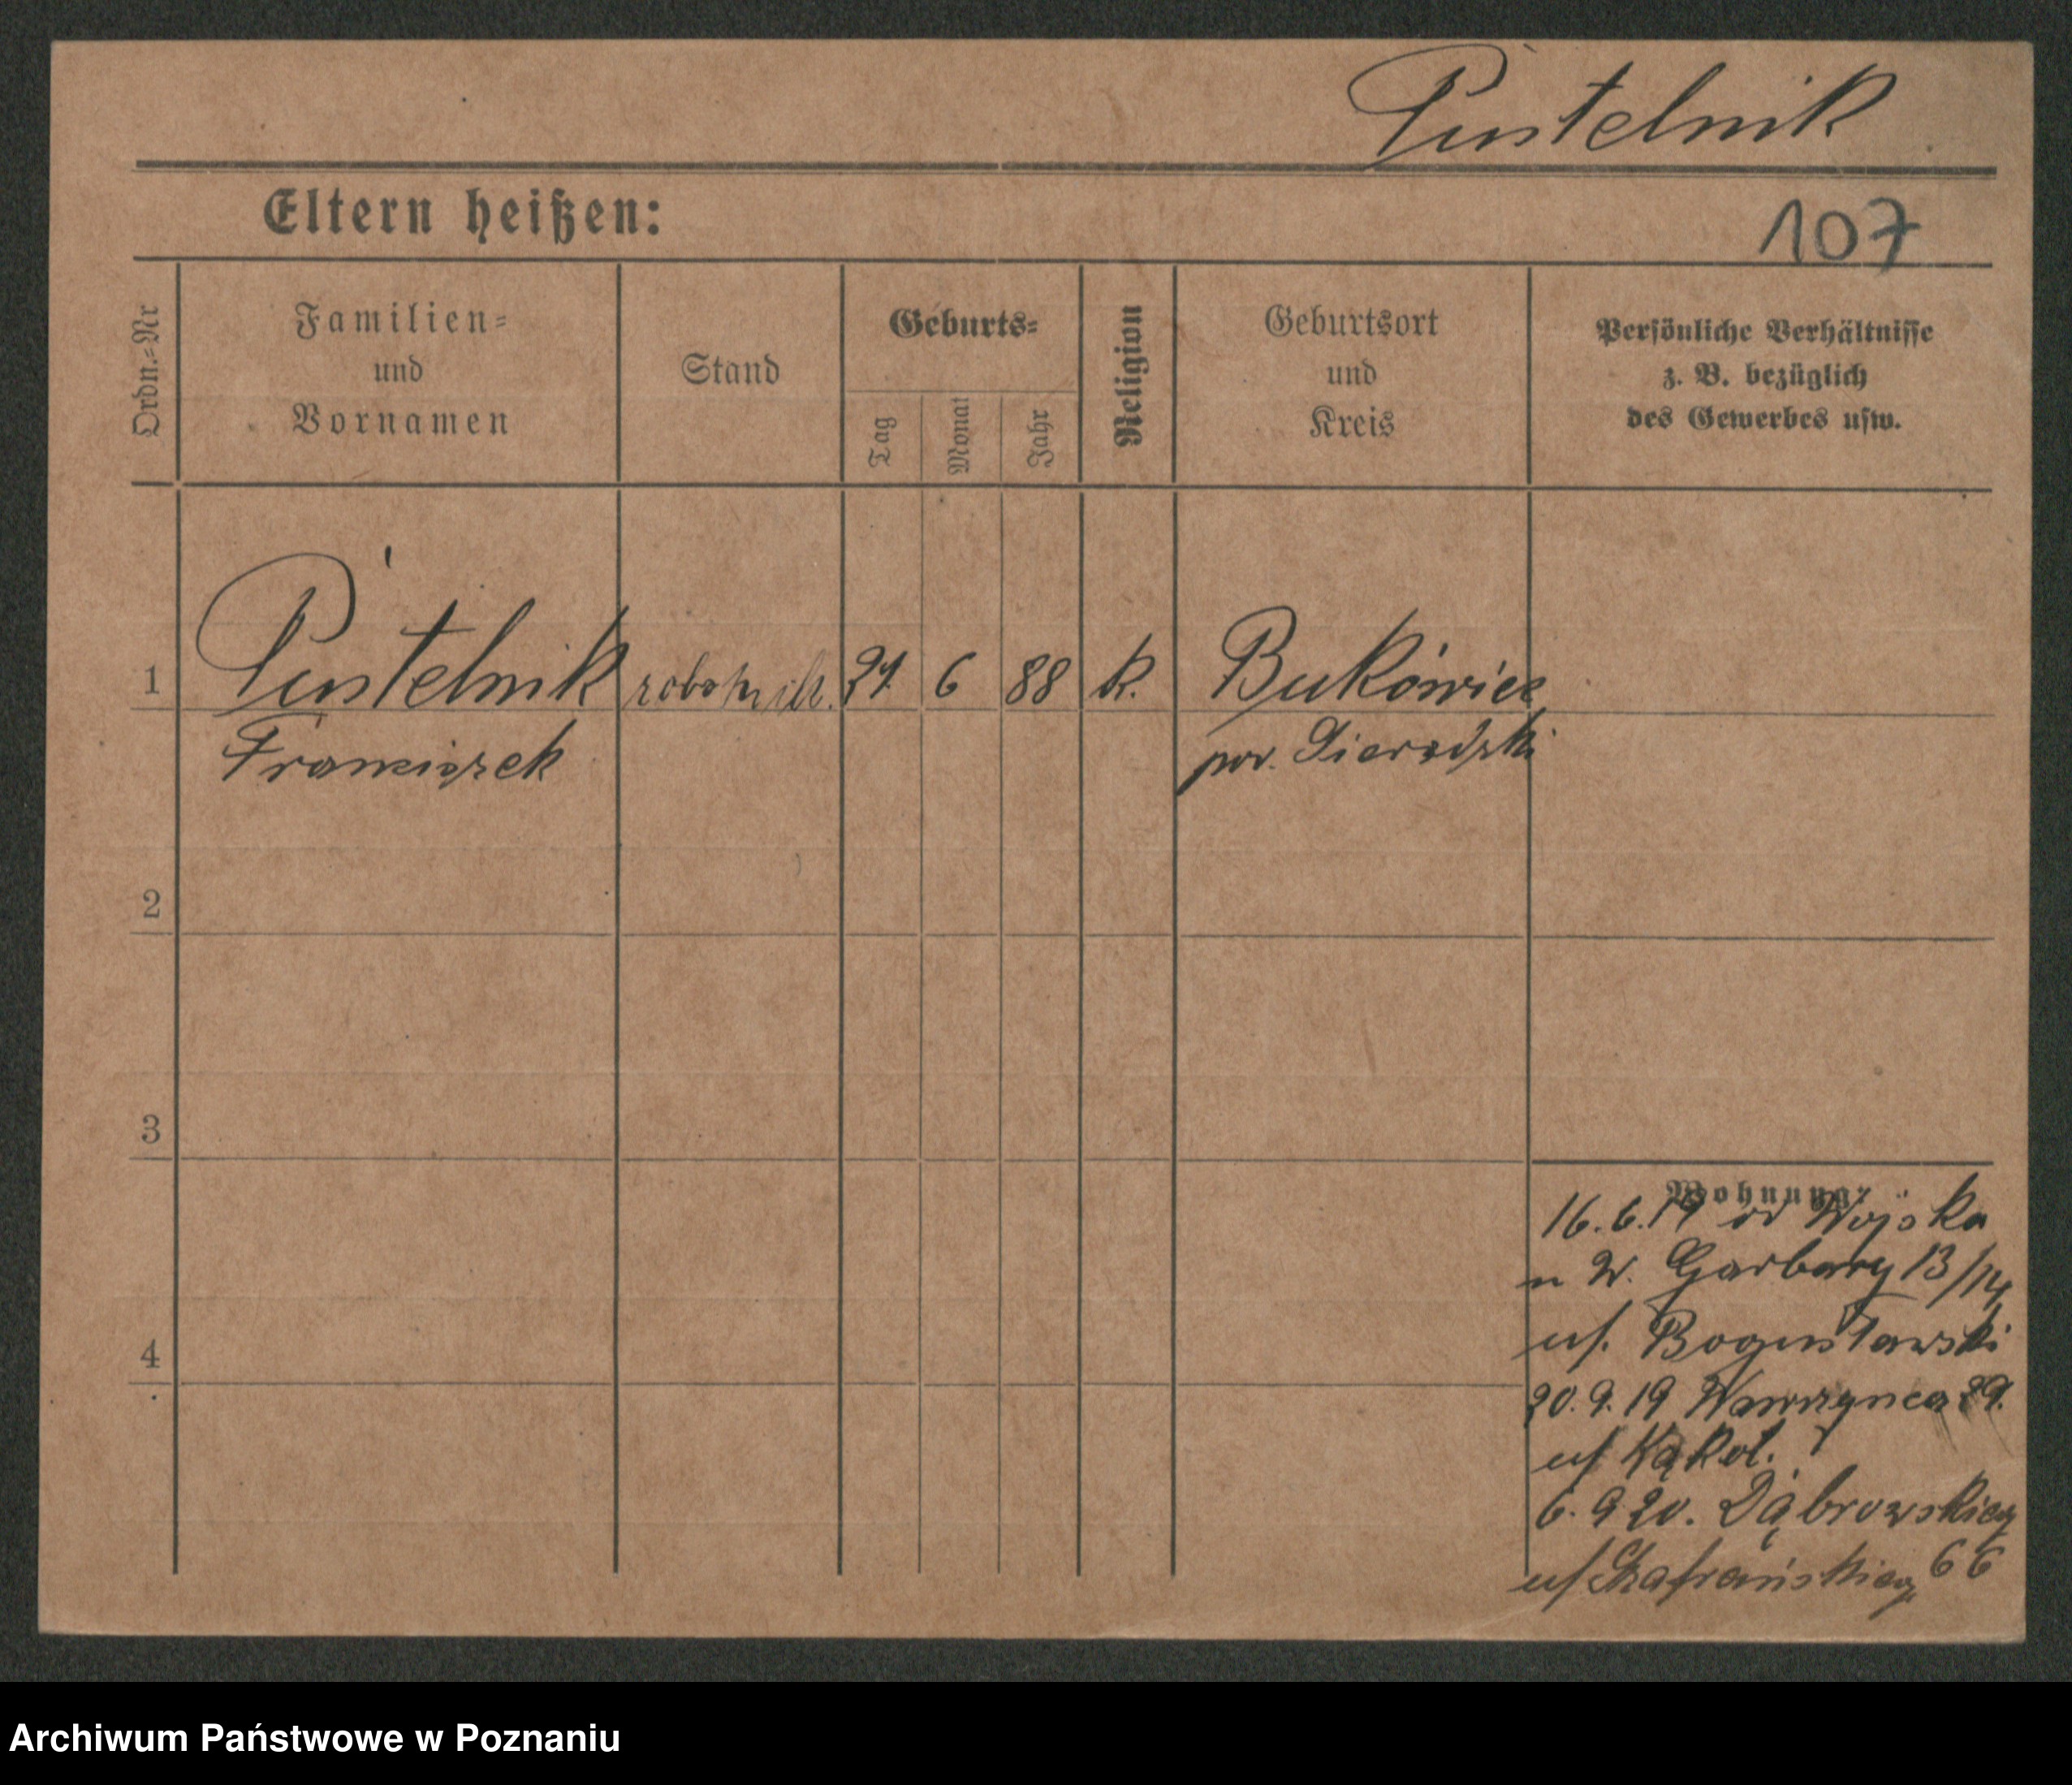 Pustelnik
Eltern heißen:
107
Ordn.=Nr
Familien=
und
Vornamen
Stand
Geburts=
Tag
Monat
Jahr
Religion
Geburtsort
und
Kreis
Persönliche Verhältnisse
z. B. bezüglich
des Gewerbes usw.
1
Pustelnik
robotnik.
6
88
k.
Bukówiec
Franciszek
pow. Sieradzki
2
3
4
Wohnung:
16.6.19 od Wojska
W. Garbary 13/14
Bogusławski
20.9.19 Wawrzynca
Kąkol.
6.9.20. Dąbrowskieg
Szafrańskieg 66
Archiwum Państwowe w Poznaniu